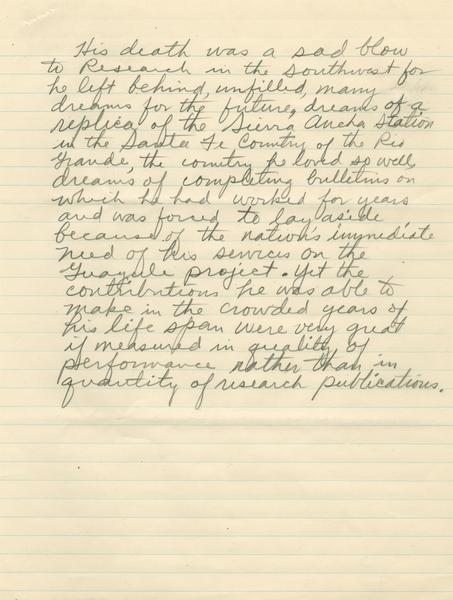 His death was a sad blow
to Research in the Southwest for
he left behind, unfilled, many
dreams for the future, dreams of a
replica of the Sierra Ancha Station
in the Santa Fe Country of the Rio
Grande, the country he loved so well,
dreams of completing bulletins on
which he had worked for years
and was forced to lay aside
because of the nation's immediate
need of his services on the
Guayule project. Yet the
contributions he was able to
make in the crowded years of
his life span were very great
if measured in quality of
performance rather than in
quantity of research publications.